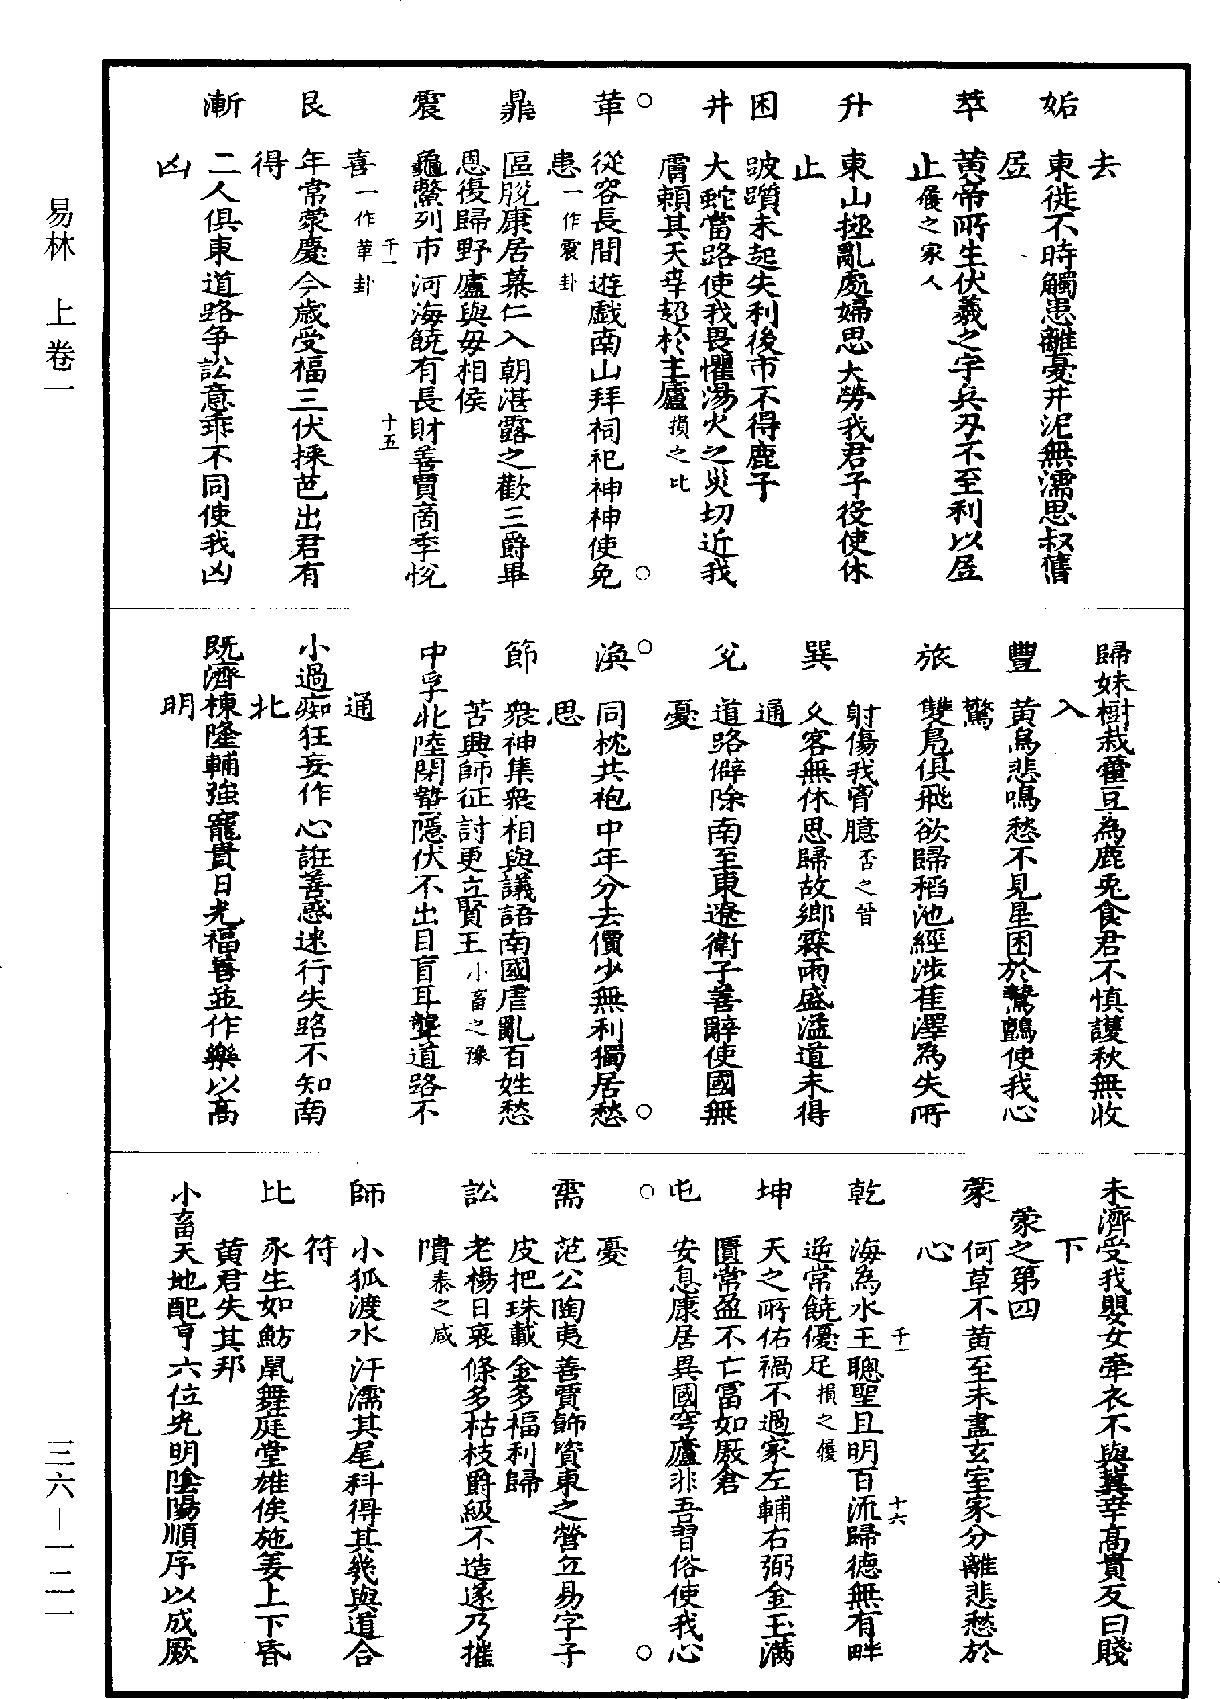 去
姤　東徙不時觸患離憂井泥無濡思叔舊
居
萃　黃帝所生伏羲之字兵刃不至利以居
止履之家人
升　東山拯亂處婦思大勞我君子役使休
止
困　跛躓未起失利後市不得鹿子
井　大蛇當路使我畏懼湯火之災切近我
膚賴其天幸趨於王廬損之比
革　從容長閒遊戲南山拜祠祀神神使免
患一作震卦
鼎　區脫康居慕仁入朝湛露之歡三爵畢
恩復歸野廬與毋相侯
震　龜鱉列市河海饒有長財善賈商季悅
喜一作革卦
艮　年常蒙慶今歲受福三伏採芑出君有
得
漸　二人俱東道路爭訟意乖不同使我凶
凶
歸妹樹栽藿豆為鹿兔食君不慎護秋無收
入
豐　黃鳥悲鳴愁不見星困於鷙鸇使我心
驚
旅　雙鳧俱飛欲歸稻池經涉萑澤為失所
射傷我胷臆否之晉
巽　久客無休思歸故鄉霖雨盛溢道未得
通
兌　道路僻除南至東遼衛子善辭使國無
憂
渙　同枕共袍中年分去價少無利獨居愁
思
節　衆神集衆相與議語南國虐亂百姓愁
苦興師征討更立賢王小畜之豫
中孚北陸閉蟄隱伏不出目盲耳聾道路不
通
小過痴狂妄作心誑善惑迷行失路不知南
北
既濟棟隆輔強寵貴日光福善並作樂以高
明
未濟受我嬰女牽衣不與冀幸高貴反曰賤
下
蒙之第四
蒙　何草不黃至未盡玄室家分離悲愁於
心
乾　海為水王聰聖且明百流歸德無有畔
逆常饒優足損之履
坤　天之所佑禍不過家左輔右弼金玉滿
匱常盈不亡富如厫倉
屯　安息康居異國穹廬非吾習俗使我心
憂
需　范公陶夷善賈飾資東之營丘易字子
皮把珠載金多福利歸
訟　老楊日衰條多枯枝爵級不造遂乃摧
隤泰之咸
師　小狐渡水汗濡其尾利得其幾與道合
符
比　豕生如魴鼠舞庭堂雄俟施姜上下昏
荒君失其邦
小畜天地配亨六位光明陰陽順序以成厥
易林　上卷一
三六—一二一